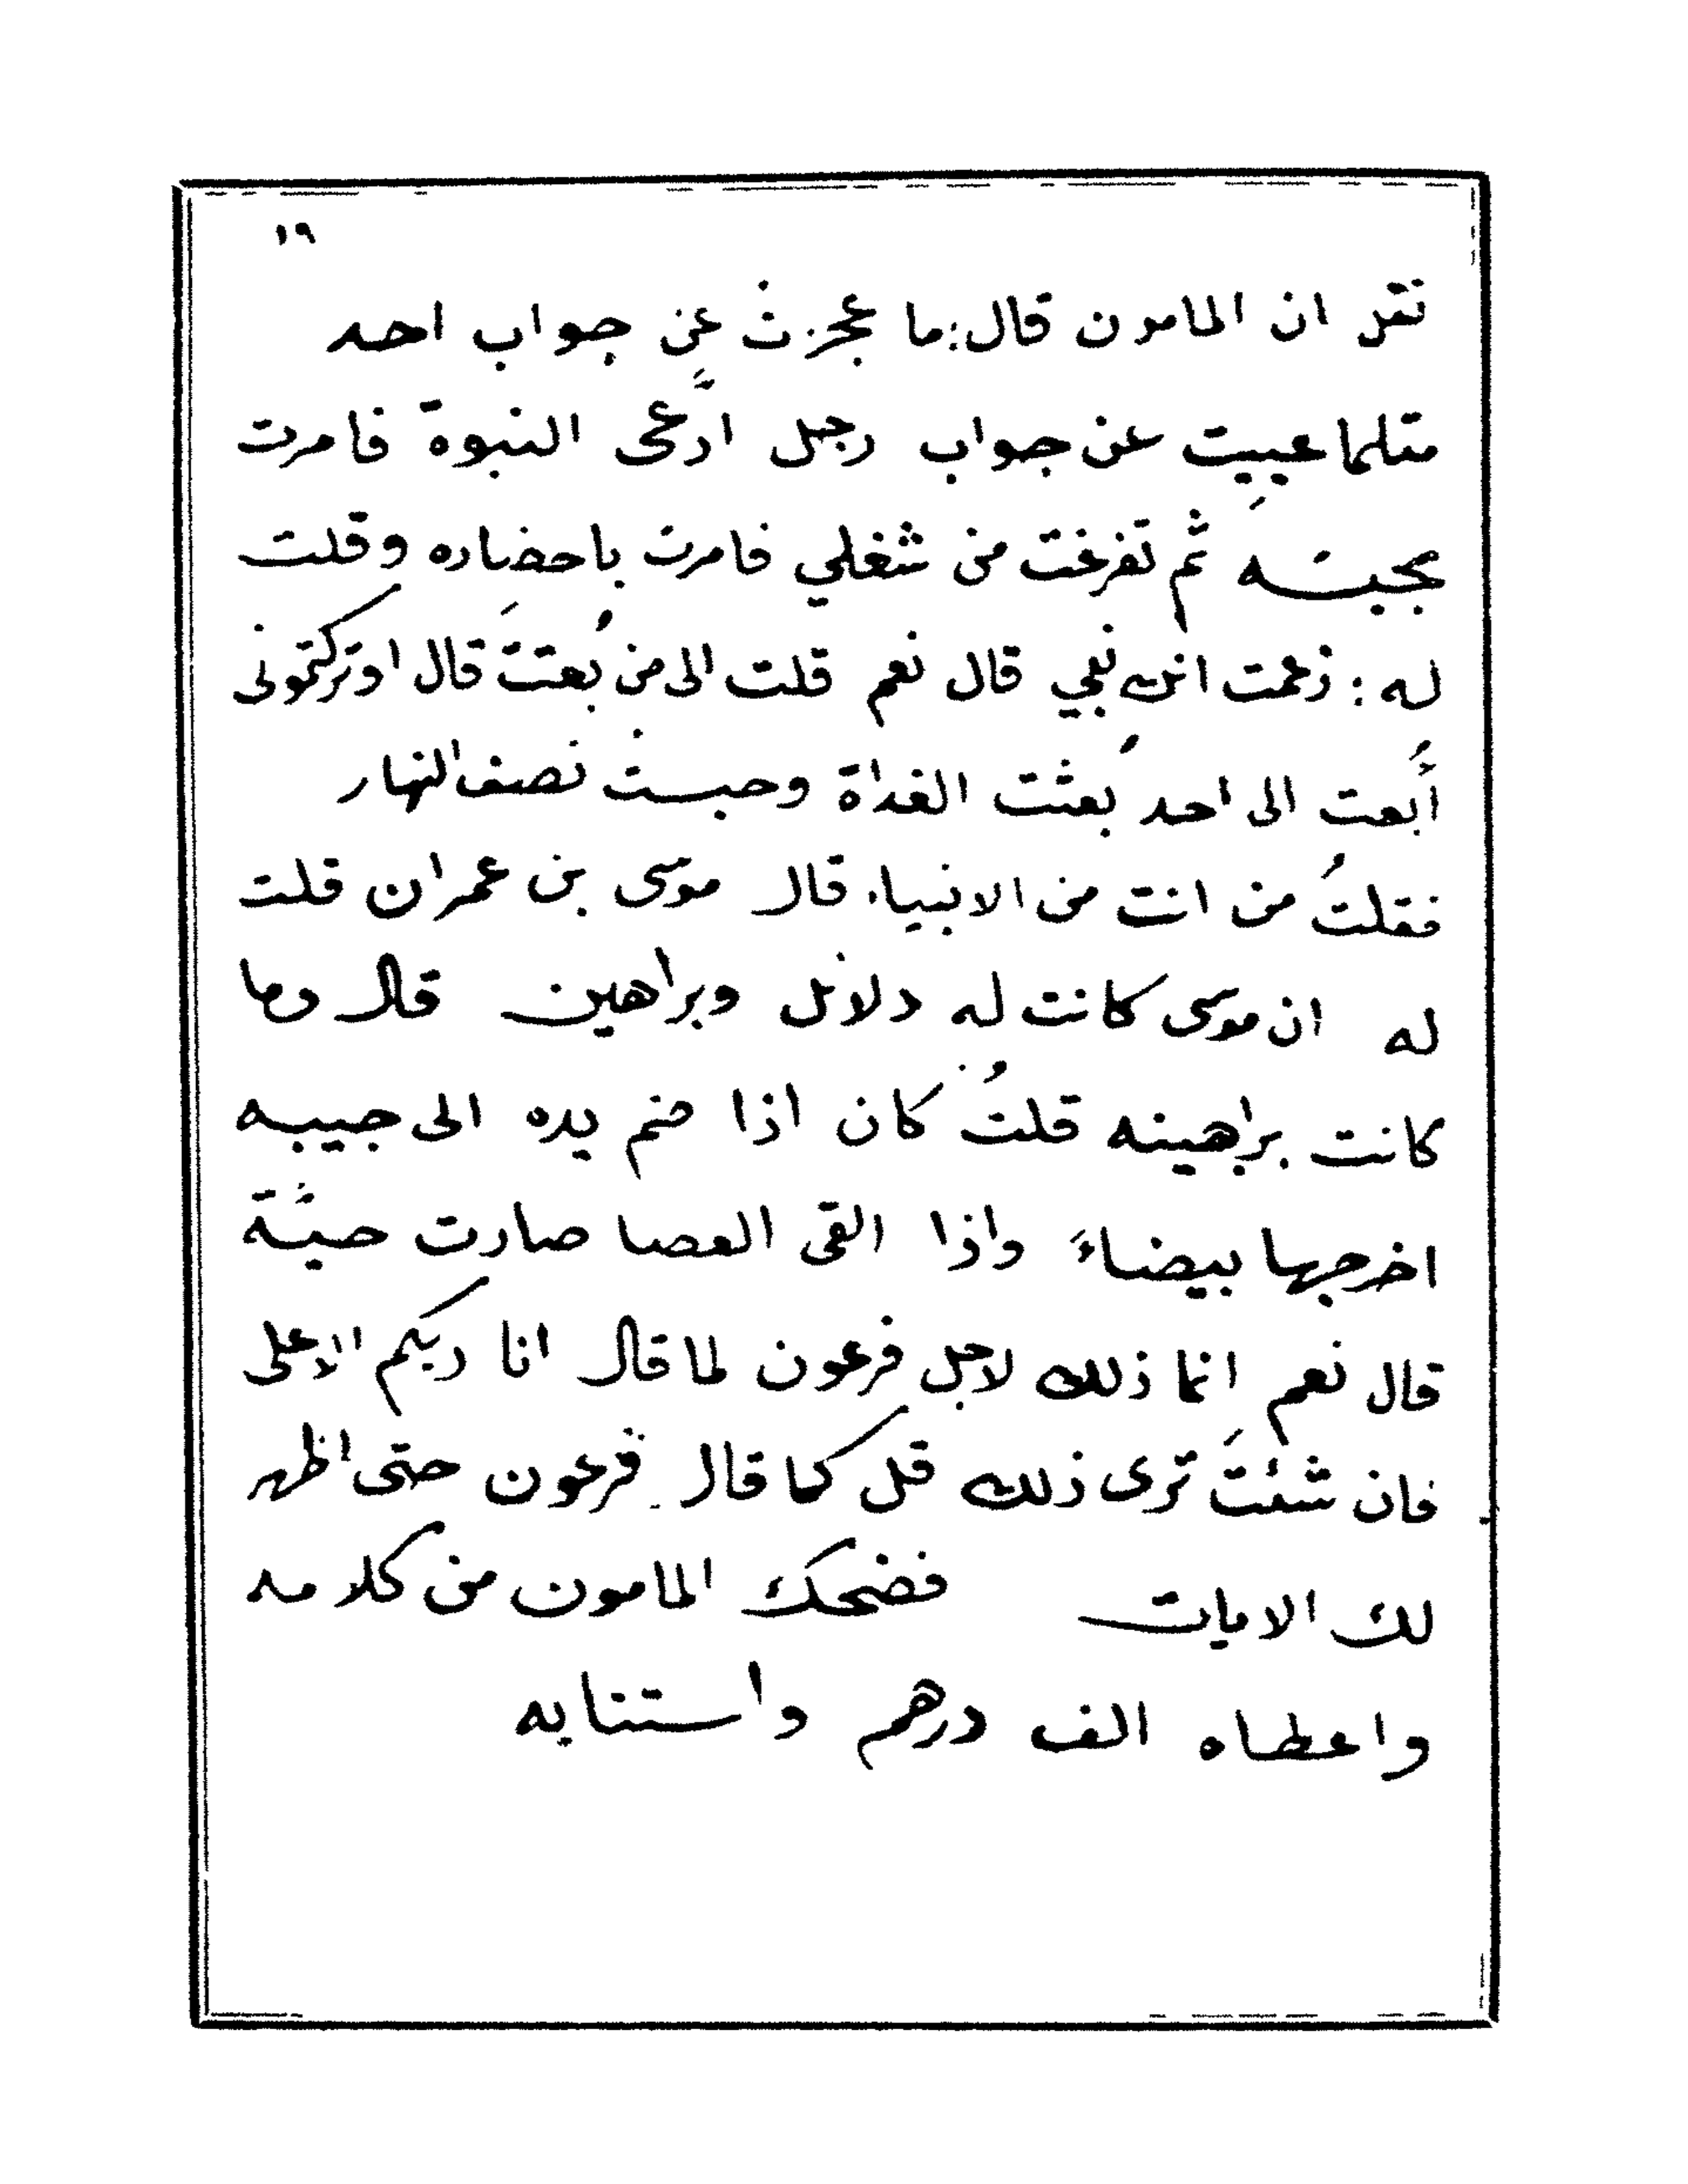 ١٩
نقل ان المامون قال: ما عجزت عن جواب احد
مثلما عييت عن جواب رجل ادَّعى النبوة فامرت
بحبسه ثم تفرغت من شغلي فامرت باحضاره وقلت
له : زعمت انك نبي قال نعم قلت الى من بُعثتَ قال اوتركتموني
أُبعث الى احد بُعثت الغداة وحبست نصف النهار
فقلتُ من انت من الانبياء قال موسى بن عمران قلت
له ان موسى كانت له دلائل وبراهين قال وما
كانت براهينه قلتُ كان اذا ضم يده الى جيبه
اخرجها بيضاءَ واذا القى العصا صارت حيَّة
قال نعم انما ذلك لاجل فرعون لما قال انا ربكم الاعلى
فان شئتَ ترى ذلك قل كما قال فرعون حتى اظهر
لك الايات فضحك المامون من كلامه
واعطاه الف درهم واستتابه